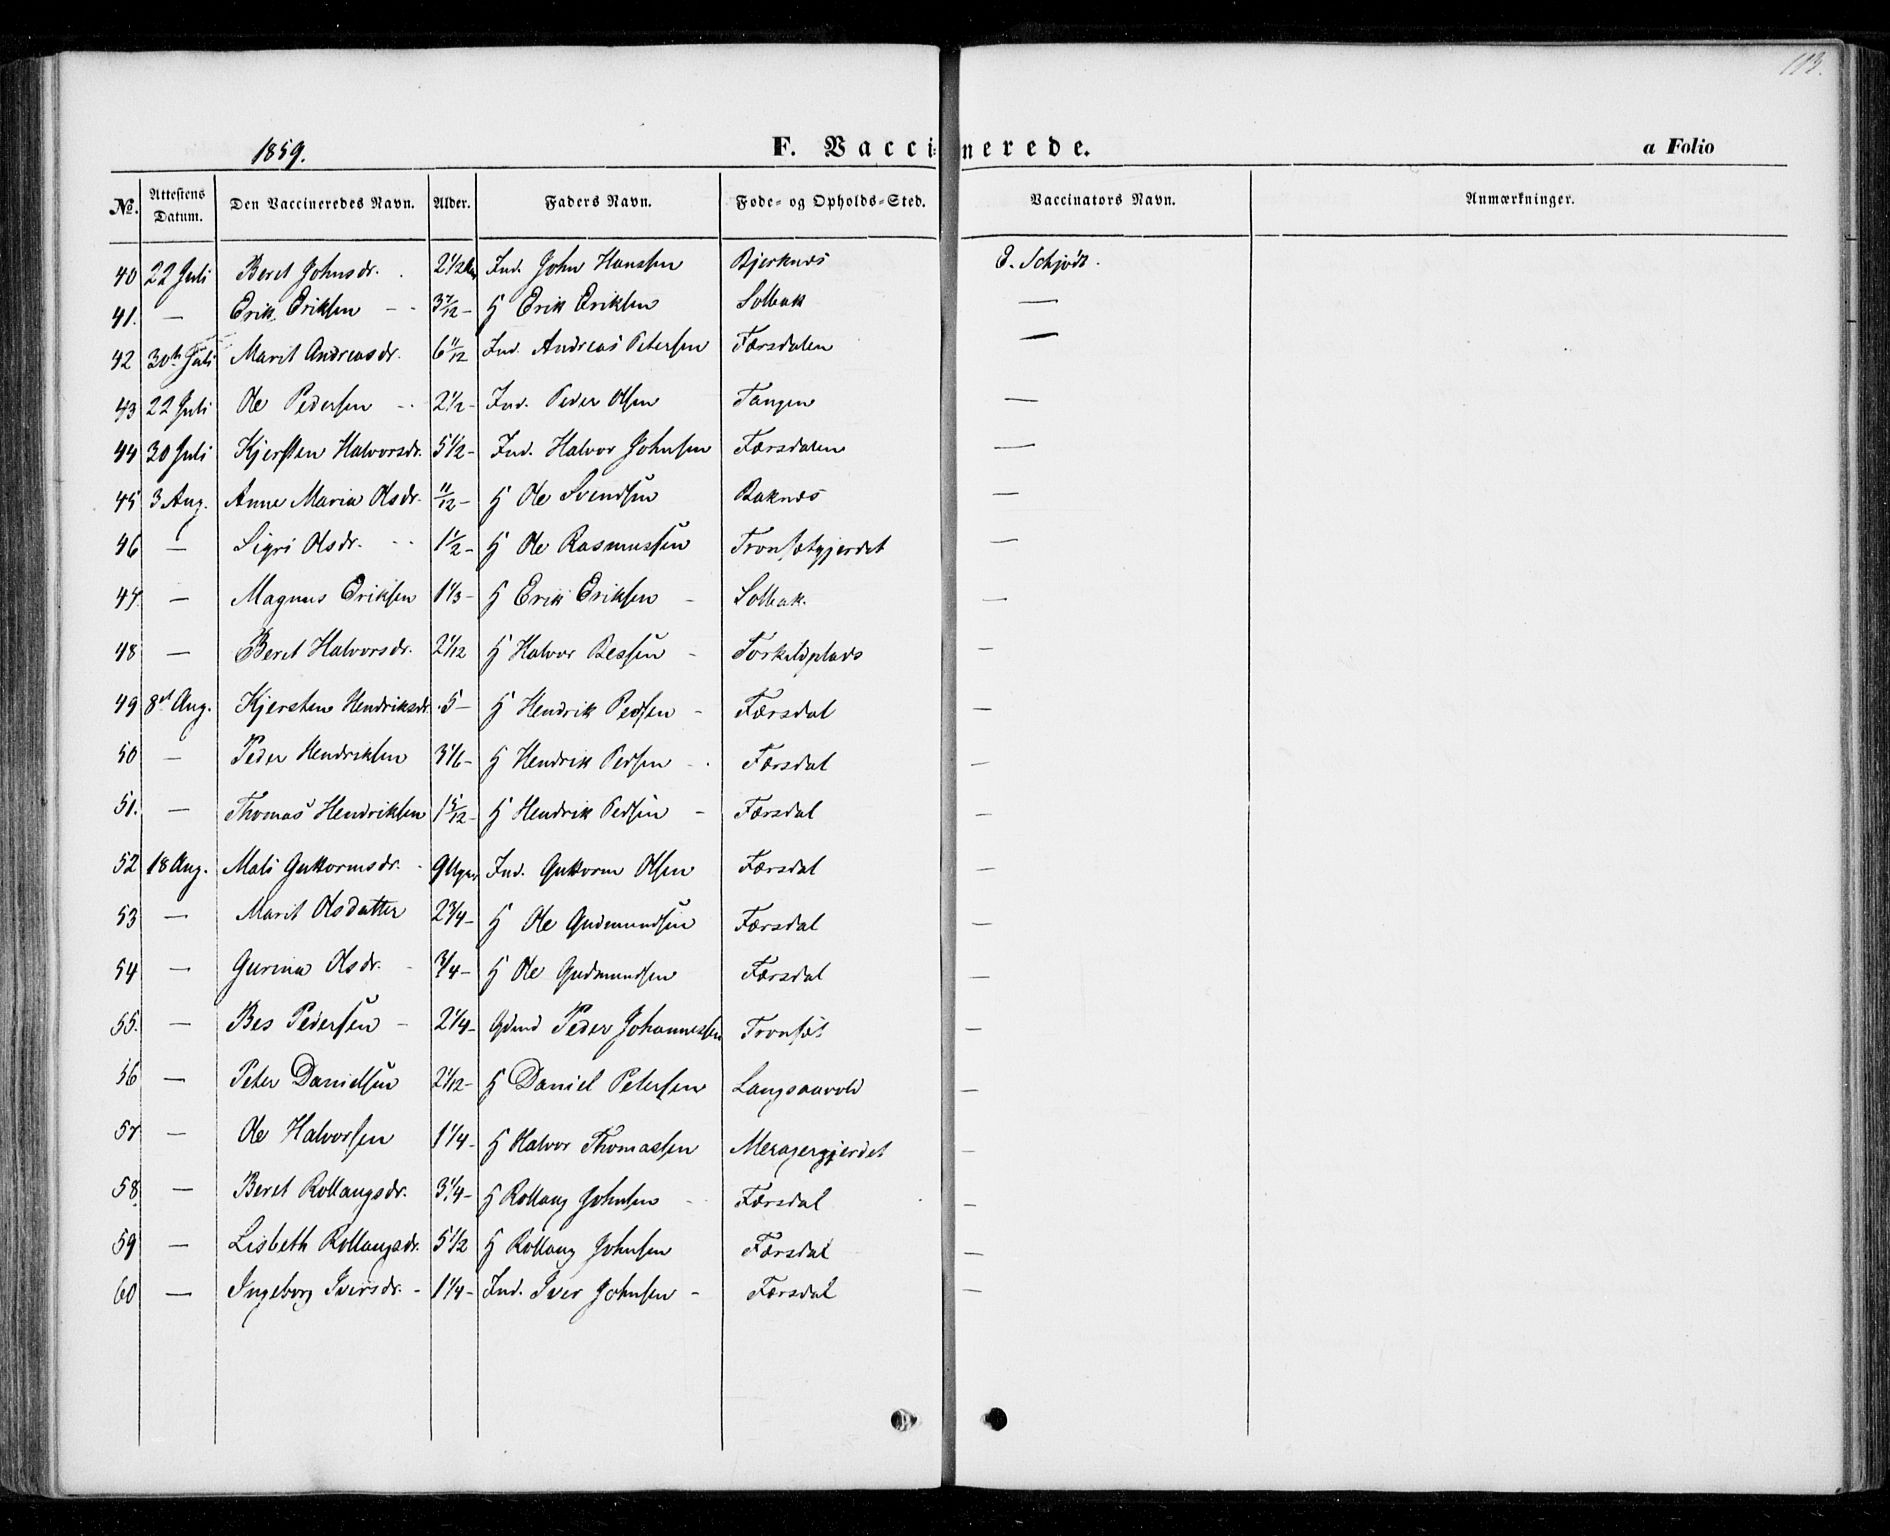 113.
1859. F. Vaccinerede. a Folio
No. Attestens Datum. Den Vaccineredes Navn. Alder. Faders Navn. Føde- og Opholds-Sted. Vaccinators Navn. Anmærkninger.
40 22 Juli Beret Johnsdr. 2 1/2 Ind. John Hanssen Bjerknes E. Schjødt.
41. — Erik Eriksen - - 3 7/12 - H Erik Eriksen Solbak —
42 30te Juli Marit Andreasdr. 6 11/12 Ind. Andreas Petersen Færsdalen —
43 22 Juli Ole Pedersen - - 2 1/2 - Ind. Peder Olsen Tangen —
44 30 Juli Kjersten Halvorsdr. 5 1/2 - Ind. Halvor Johnsen Færsdalen —
45 3 Aug. Anne Maria Olsdr. 11/12 - H Ole Svendsen Baknes —
46 — Sigri Olsdr. - - 1 1/2 - H Ole Rasmussen Tronsætgjerdet —
47. — Magnus Eriksen 1 1/3 - H Erik Eriksen - Solbak. —
48 — Beret Halvorsdr. 2 1/12 H Halvor Bessen - Torkildplads —
49 8de Aug. Kjersten Hendriksdr. 5 - H Hendrik Pedsen - Færsdal —
50 — Peder Hendriksen 3 1/6 - H Hendrik Pedsen - . Færsdal —
51. — Thomas Hendriksen 1 5/12 - H Hendrik Pedsen - Færsdal —
52 18 Aug. Mali Guttormsdr. - 9 Uger Ind. Guttorm Olsen Færsdal
53 — Marit Olsdatter 2 3/4 - H Ole Gudmundsen Færsdal —
54 — Gurina Olsdr. - 3/4 - H Ole Gudmundsen Færsdal —
55. — Bes Pedersen - 2 1/4 - Gdmd Peder Johannessen Tronsæt —
56 — Peter Danielsen 2 1/12 - H Daniel Petersen Langsaavold —
57 — Ole Halvorsen 1 1/4 - H Halvor Thomassen Meragergjerdet —
58 — Beret Rollaugsdr. 3 1/4 - H Rollaug Johnsen - Færsdal —
59 — Lisbeth Rollaugsdr. 5 1/2 H Rollaug Johnsen Færsdal —
60 — Ingeborg Iversdr. - 1 1/4 - Ind. Iver Johnsen - Færsdal —